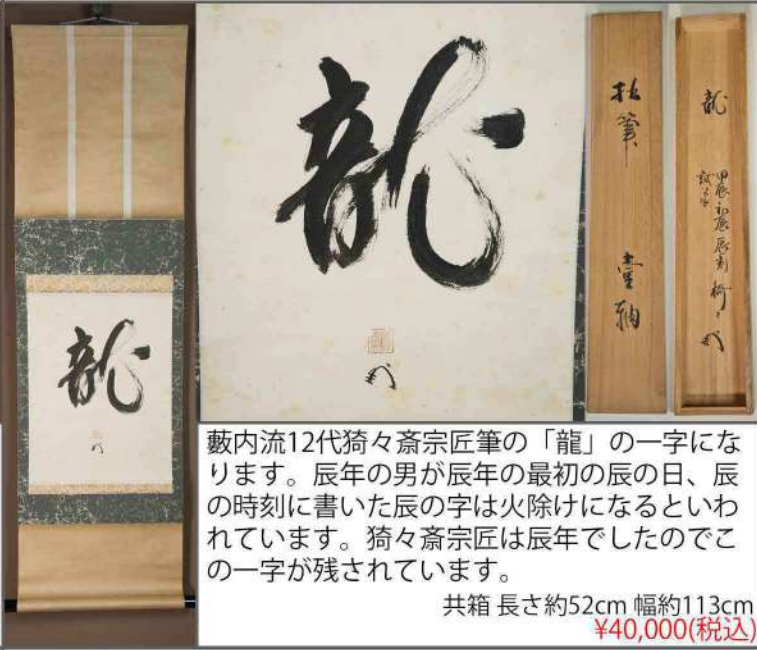 龍
拙筆
壹軸
龍
甲辰初辰辰刻
藪内流12代猗々斎宗匠筆の「龍」の一字にな
ります。辰年の男が辰年の最初の辰の日、辰
の時刻に書いた辰の字は火除けになるといわ
れています。猗々斎宗匠は辰年でしたのでこ
の一字が残されています。
共箱 長さ約52cm 幅約113cm
¥40,000(税込)